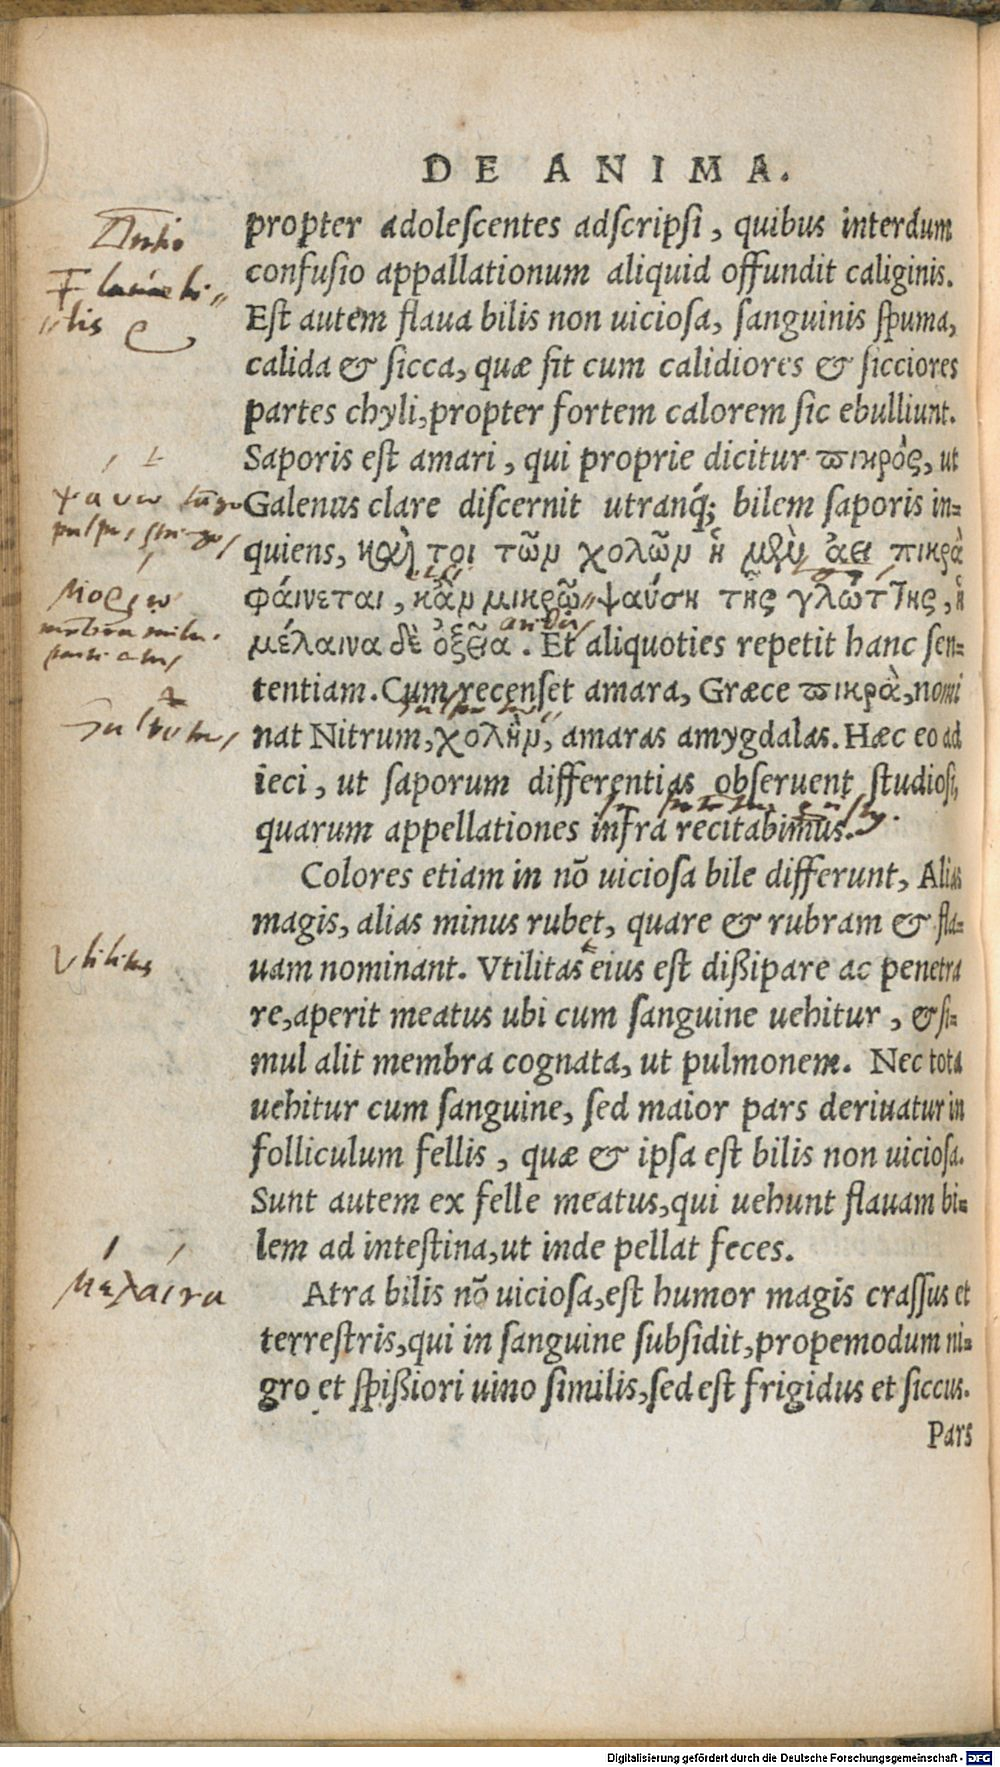 DE ANIMA.
propter adolescentes adscripsi, quibus interdum
confusio appallationum aliquid offundit caliginis.
Est autem flaua bilis non uiciosa, sanguinis spuma,
calida & sicca, quæ fit cum calidiores & sicciores
partes chyli, propter fortem calorem sic ebulliunt.
Saporis est amari, qui proprie dicitur πικρὸς, ut
Galenus clare discernit utranq́; bilem saporis in-
quiens, καὶ τοι τῶν χολῶν ἡ μὲν ἀεὶ πικρὰ
φάινεται, κἂν μικρῷ ψαύση τῆς γλώττης, ἡ
μέλαινα δὲ ὀξεῖα. Et aliquoties repetit hanc sen-
tentiam. Cum recenset amara, Græce πικρὰ, nomi
nat Nitrum, χολὴν, amaras amygdalas. Hæc eo ad
ieci, ut saporum differentias obseruent studiosi,
quarum appellationes infra recitabimus.
Colores etiam in nõ uiciosa bile differunt, Alias
magis, alias minus rubet, quare & rubram & fla-
uam nominant. Vtilitas eius est dißipare ac penetra
re, aperit meatus ubi cum sanguine uehitur, & si-
mul alit membra cognata, ut pulmonem. Nec tota
uehitur cum sanguine, sed maior pars deriuatur in
folliculum fellis, quæ & ipsa est bilis non uiciosa.
Sunt autem ex felle meatus, qui uehunt flauam bi-
lem ad intestina, ut inde pellat feces.
Atra bilis nõ uiciosa, est humor magis crassus et
terrestris, qui in sanguine subsidit, propemodum ni-
gro et spißiori uino similis, sed est frigidus et siccus.
Pars
Vtilitas
Μελαίνα
Digitalisierung gefördert durch die Deutsche Forschungsgemeinschaft - DFG